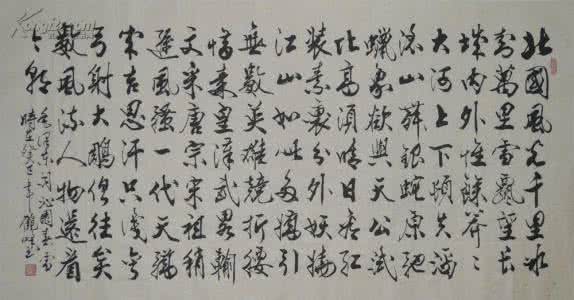 北國風光千里冰
封萬里雪飄望長
城内外惟餘莽々
大河上下頓失滔
滔山舞銀蛇原馳
蠟象欲與天公試
比高須晴日看紅
裝素裹分外妖嬈
江山如此多嬌引
無數英雄競折腰
惜秦皇漢武略輸
文采唐宗宋祖稍
遜風騷一代天驕
成吉思汗只識彎
弓射大鵰俱往矣
數風流人物還看
今朝
毛澤東詞沁園春雪
時在癸巳年